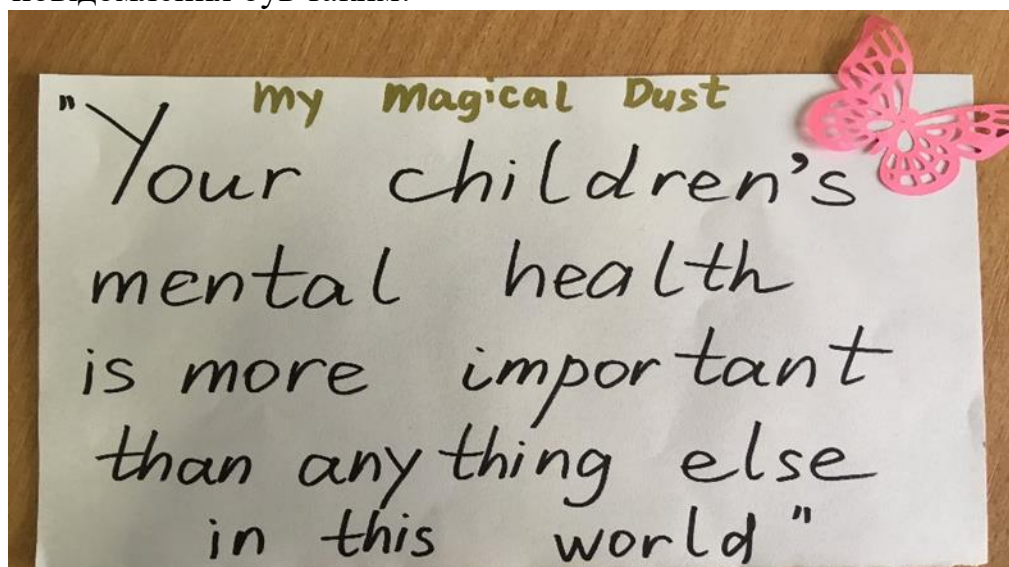 my Magical Dust
"Your children's
mental health
is more important
than anything else
in this world"